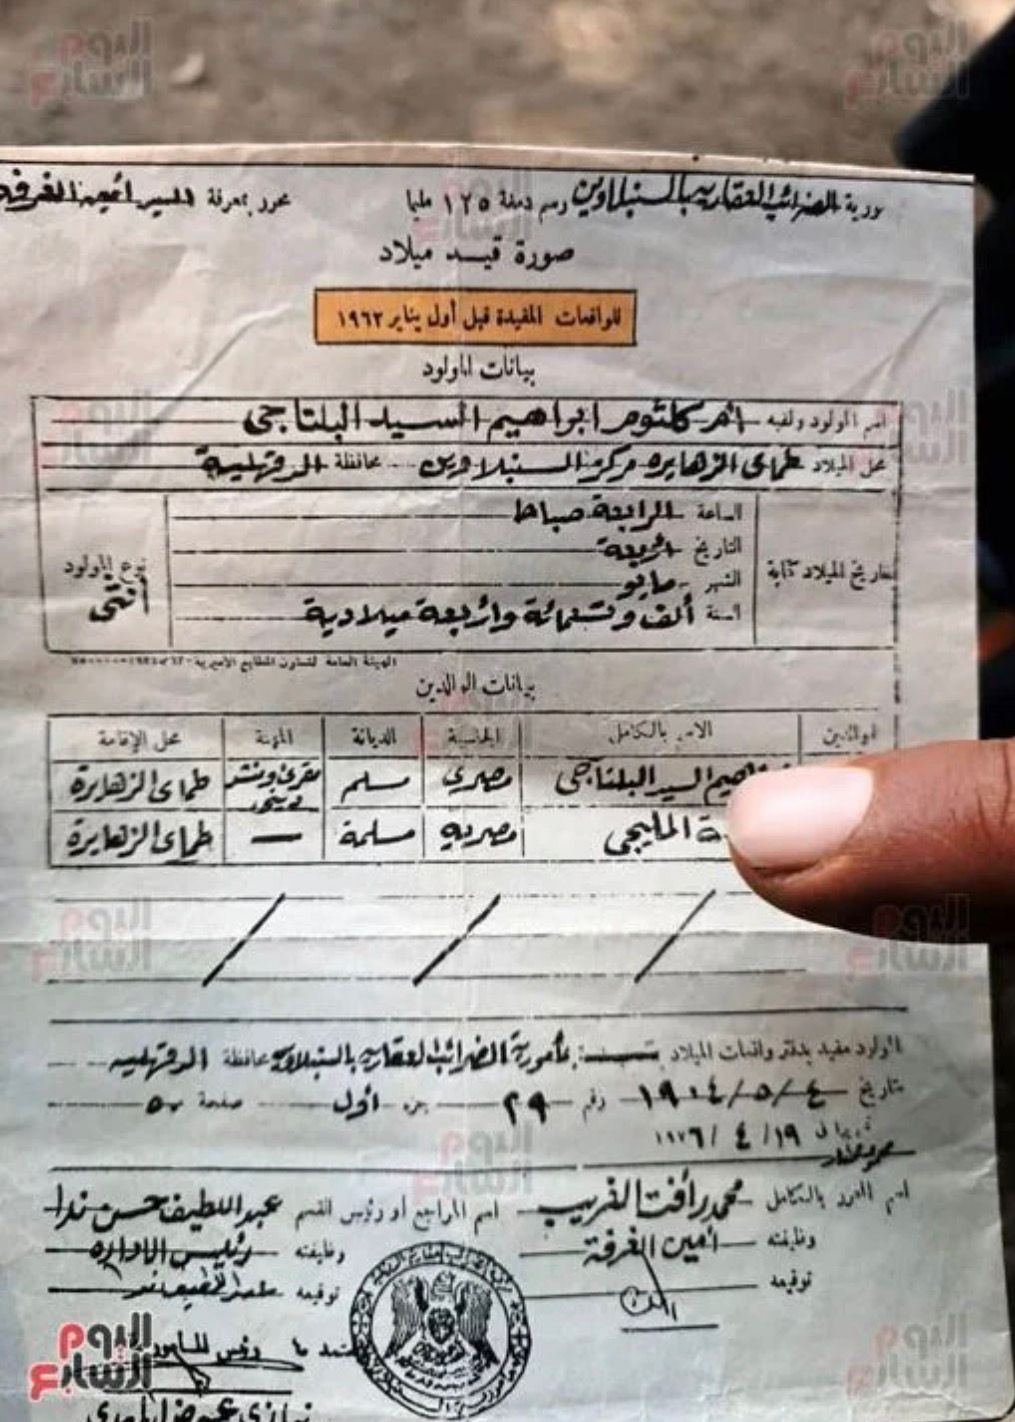 اليوم السابع
ورية الضرائب العقارية بالسنبلاوين رسم دمغة ١٢٥ مليما محرر بمعرفة السيد أمين الغرفة
صورة قيد ميلاد
للواقعات المقيدة قبل أول يناير ١٩٦٢
بيانات المولود
اسم المولود ولقبه أم كلثوم ابراهيم السيد البلتاجى
محل الميلاد طماى الزهايره مركز السنبلاوين محافظة الدقهلية
تاريخ الميلاد كتابة
الساعة الرابعة صباحا
التاريخ اربعة
الشهر مايو
السنة ألف وتسعمائة واربعة ميلادية
نوع المولود
أنثى
الهيئة العامة لشئون المطابع الأميرية
بيانات الوالدين
الوالدين الاسم بالكامل الجنسية الديانة المهنة محل الإقامة
السيد البلتاجى مصرى مسلم طماى الزهايرة
المليجى مصرية مسلمة — طماى الزهايرة
المولود مقيد بدفتر واقعات الميلاد بمأمورية الضرائب العقارية بالسنبلاوين محافظة الدقهلية
بتاريخ ٤/٥/١٩٠٤ رقم ٢٩ جزء أول صفحة ٥٠
١٩/٤/١٩٧٦
اسم المحرر بالكامل محمد رأفت الغريب اسم المراجع أو رئيس القسم عبد اللطيف حسن ندا
وظيفته أمين الغرفة وظيفته رئيس الاداره
توقيعه توقيعه
رئيس المأمورية